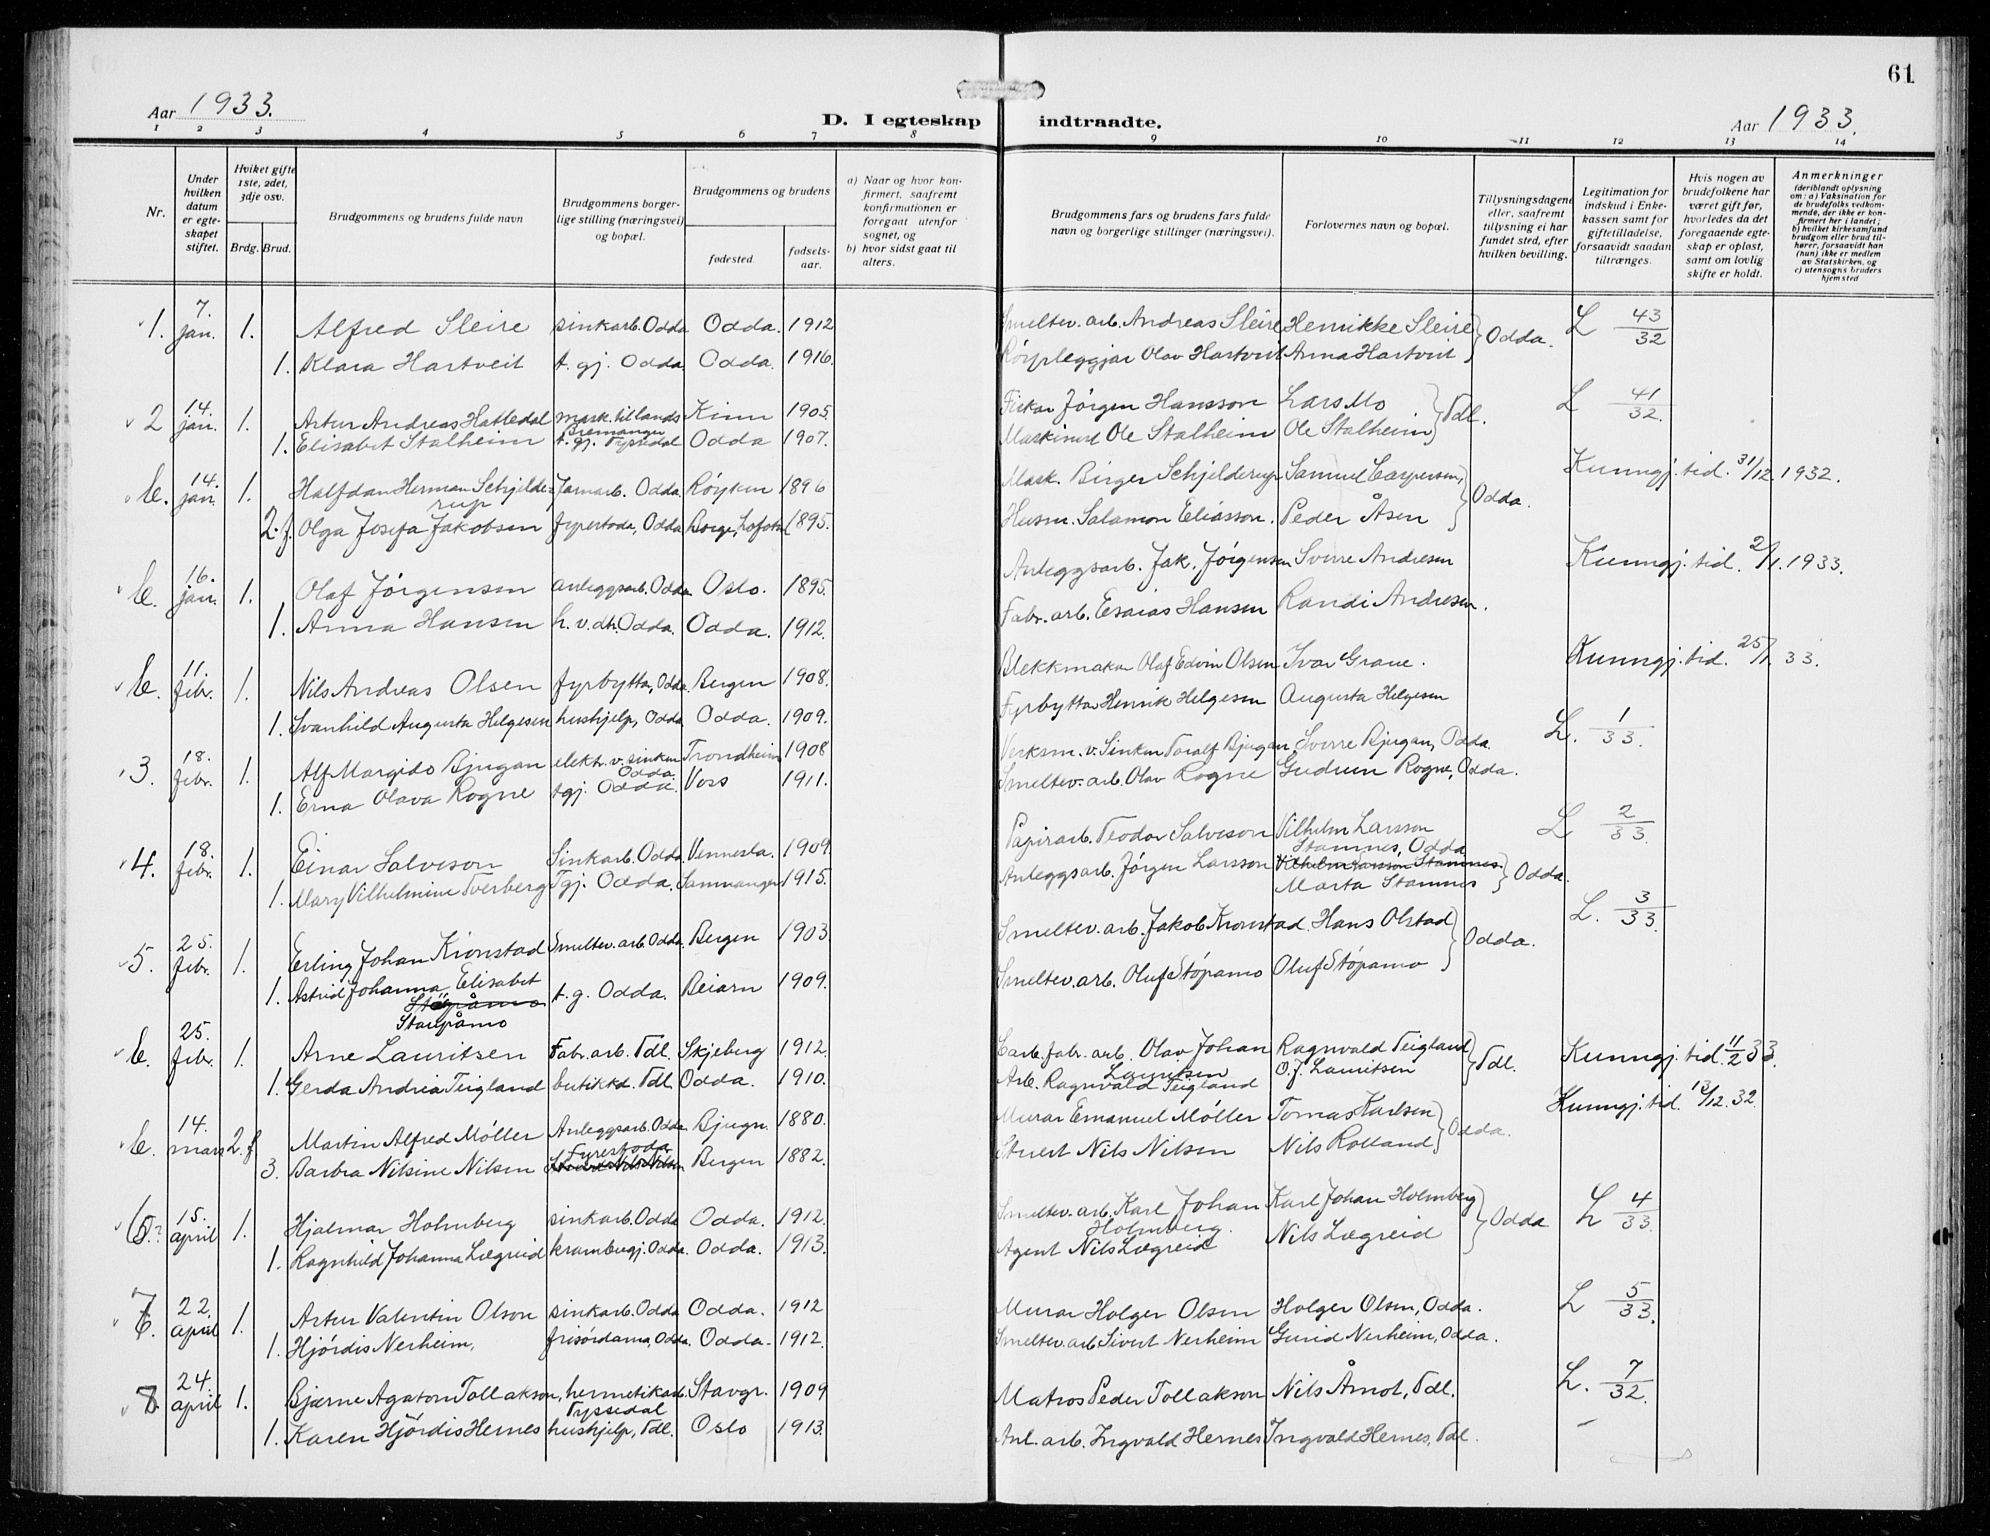 61
Aar 1933.
D. I egteskap indtraadte.
Aar 1933.
1 2 3 4 5 6 7 8 9 10 11 12 13 14
Nr.
Under hvilken datum er egteskapet stiftet.
Hviket gifte 1ste, 2det, 3dje osv.
Brdg. Brud.
Brudgommens og brudens fulde navn
Brudgommens borgerlige stilling (næringsvei) og bopæl.
Brudgommens og brudens
fødested.
fødselsaar.
a) Naar og hvor konfirmert, saafremt konfirmationen er foregaat utenfor sognet, og
b) hvor sidst gaat til alters.
Brudgommens fars og brudens fars fulde navn og borgerlige stillinger (næringsvei).
Forlovernes navn og bopæl.
Tillysningsdagene eller, saafremt tillysning ei har fundet sted, efter hvilken bevilling.
Legitimation for indskud i Enkekassen samt for giftetilladelse, forsaavidt saadan tiltrænges.
Hvis nogen av brudefolkene har været gift før, hvorledes da det foregaaende egteskap er opløst, samt om lovlig skifte er holdt.
Anmerkninger (deriblandt oplysning om: a) Vaksination for de brudefolks vedkommende, der ikke er konfirmert her i landet; b) hvilket kirkesamfund brudgom eller brud tilhører, forsaavidt han (hun) ikke er medlem av Statskirken, og c) utensogns bruders hjemsted
1. 7. jan. 1. Alfred Sleire sinkarb. Odda Odda. 1912 Smeltev. arb. Andreas Sleire Henrikke Sleire Odda. L 43/32
1. Klara Hartveit t. gj. Odda Odda. 1916. Rørleggjar Olav Hartveit Anna Hartveit
2 14. jan. 1. Artur Andreas Hatledal mask. til lands Bremanger Kinn 1905 Fiskar Jörgen Hansson Lars Mo Tdl. L 41/32.
1. Elisabet Stalheim t. gj. Tyssedal Odda 1907. Maskinist Ole Stalheim Ole Stalheim
b. 14. jan. 1. Halfdan Herman Schjelderup Jarnarb. Odda. Røyken 1896 Mask. Birger Schjelderup Samuel Caspersen, Odda. Kunngj. tid. 31/12 1932.
2. f. Olga Josefa Jakobsen fyrstoda, Odda Borge, Lofoten 1895. Husm. Salamon Eliasson. Peder Åsen
b. 16. jan. 1. Olaf Jörgensen anleggsarb. Odda Oslo. 1895. Anleggsarb. Jak. Jörgensen Sverre Andresen Kunngj. tid. 2/1. 1933.
1. Anna Hansen h. v. dtr. Odda. Odda. 1912. Fabr. arb. Esaias Hansen Randi Andresen.
b. 11. febr. 1. Nils Andreas Olsen fyrbytta, Odda Bergen 1908. Blekkmakar Olaf Edvin Olsen Ivar Grane. Kunngj. tid. 25/1. 33.
1. Svanhild Augusta Helgesen hushjelp, Odda Odda. 1909. Fyrbyttar Henrik Helgesen Augusta Helgesen
3. 18. febr. 1. Alf Margido Bjugan elektr. v. sinken Odda. Trondheim 1908 Verksm. v. Sinken Toralf Bjugan Sverre Bjugan, Odda. L. 1/33.
1. Erna Olava Rogne tgj. Odda. Voss 1911. Smeltev. arb. Olav Rogne Gudrun Rogne, Odda.
4. 18. febr. 1. Einar Salveson Sinkarb. Odda. Vennesla. 1909. Papirarb. Teodor Salveson Vilhelm Larsson Stamnes, Odda L 2/33
1. Mary Vilhelmine Tverberg Tgj. Odda. Samnanger 1915. Anleggsarb. Jörgen Larsson Vilhelm Larsson Stamnes. Marta Stamnes Odda.
5. 25. febr. 1. Erling Johan Kronstad Smeltev. arb. Odda. Bergen 1903. Smeltev. arb. Jakob Kronstad Hans Olstad Odda. L. 3/33.
1. Astrid Johanna Elisabet Staupåmo t. g. Odda. Beiarn 1909. Smeltev. arb. Oluf Stópamo Oluf Stópamo
b. 25. febr. 1. Arne Lauritsen Fabr. arb. Tdl. Skjeberg 1912. Carb. fabr. arb. Olav Johan Lauritsen Ragnvald Teigland Tdl. Kunngj. tid. 11/2 33.
1. Gerda Andrea Teigland butikkd. Tdl. Odda. 1910. Arb. Ragnvald Teigland O. J. Lauritsen
b. 14. mars 2. f. Martin Alfred Móller Anleggsarb. Odda Bjugn. 1880. Murar Emanuel Móller Tomas Karlsen Odda. Kunngj. tid. 13/12. 32.
3. Barbra Nilsine Nilsen Fyrestoda Bergen 1882. Stuert Nils Nilsen Nils Rolland
6. 15. april 1. Hjalmar Holmberg sinkarb. Odda Odda. 1912. Smeltev. arb. Karl Johan Holmberg. Karl Johan Holmberg Odda L 4/33.
1. Ragnhild Johanna Lægreid krambugj. Odda. Odda. 1913. Agent Nils Lægreid Nils Lægreid
7 6. 22. april 1. Artur Valentin Olson sinkarb. Odda Odda. 1912 Murar Holger Olsen Holger Olsen, Odda. L 5/33.
1. Hjórdis Nerheim, frisórdama, Odda. Odda. 1912. Smeltev. arb. Sivert Nerheim Gurid Nerheim, Odda.
8. 24. april 1. Bjarne Agaton Tollakson, hermetikarb. Tyssedal Stavgr. 1909 Matros Peder Tollakson Nils Årnot, Tdl. L. 7/32.
1. Karen Hjördis Hernes hushjelp, Tdl. Oslo 1913. Anl. arb. Ingvald Hernes Ingvald Hernes, Tdl.